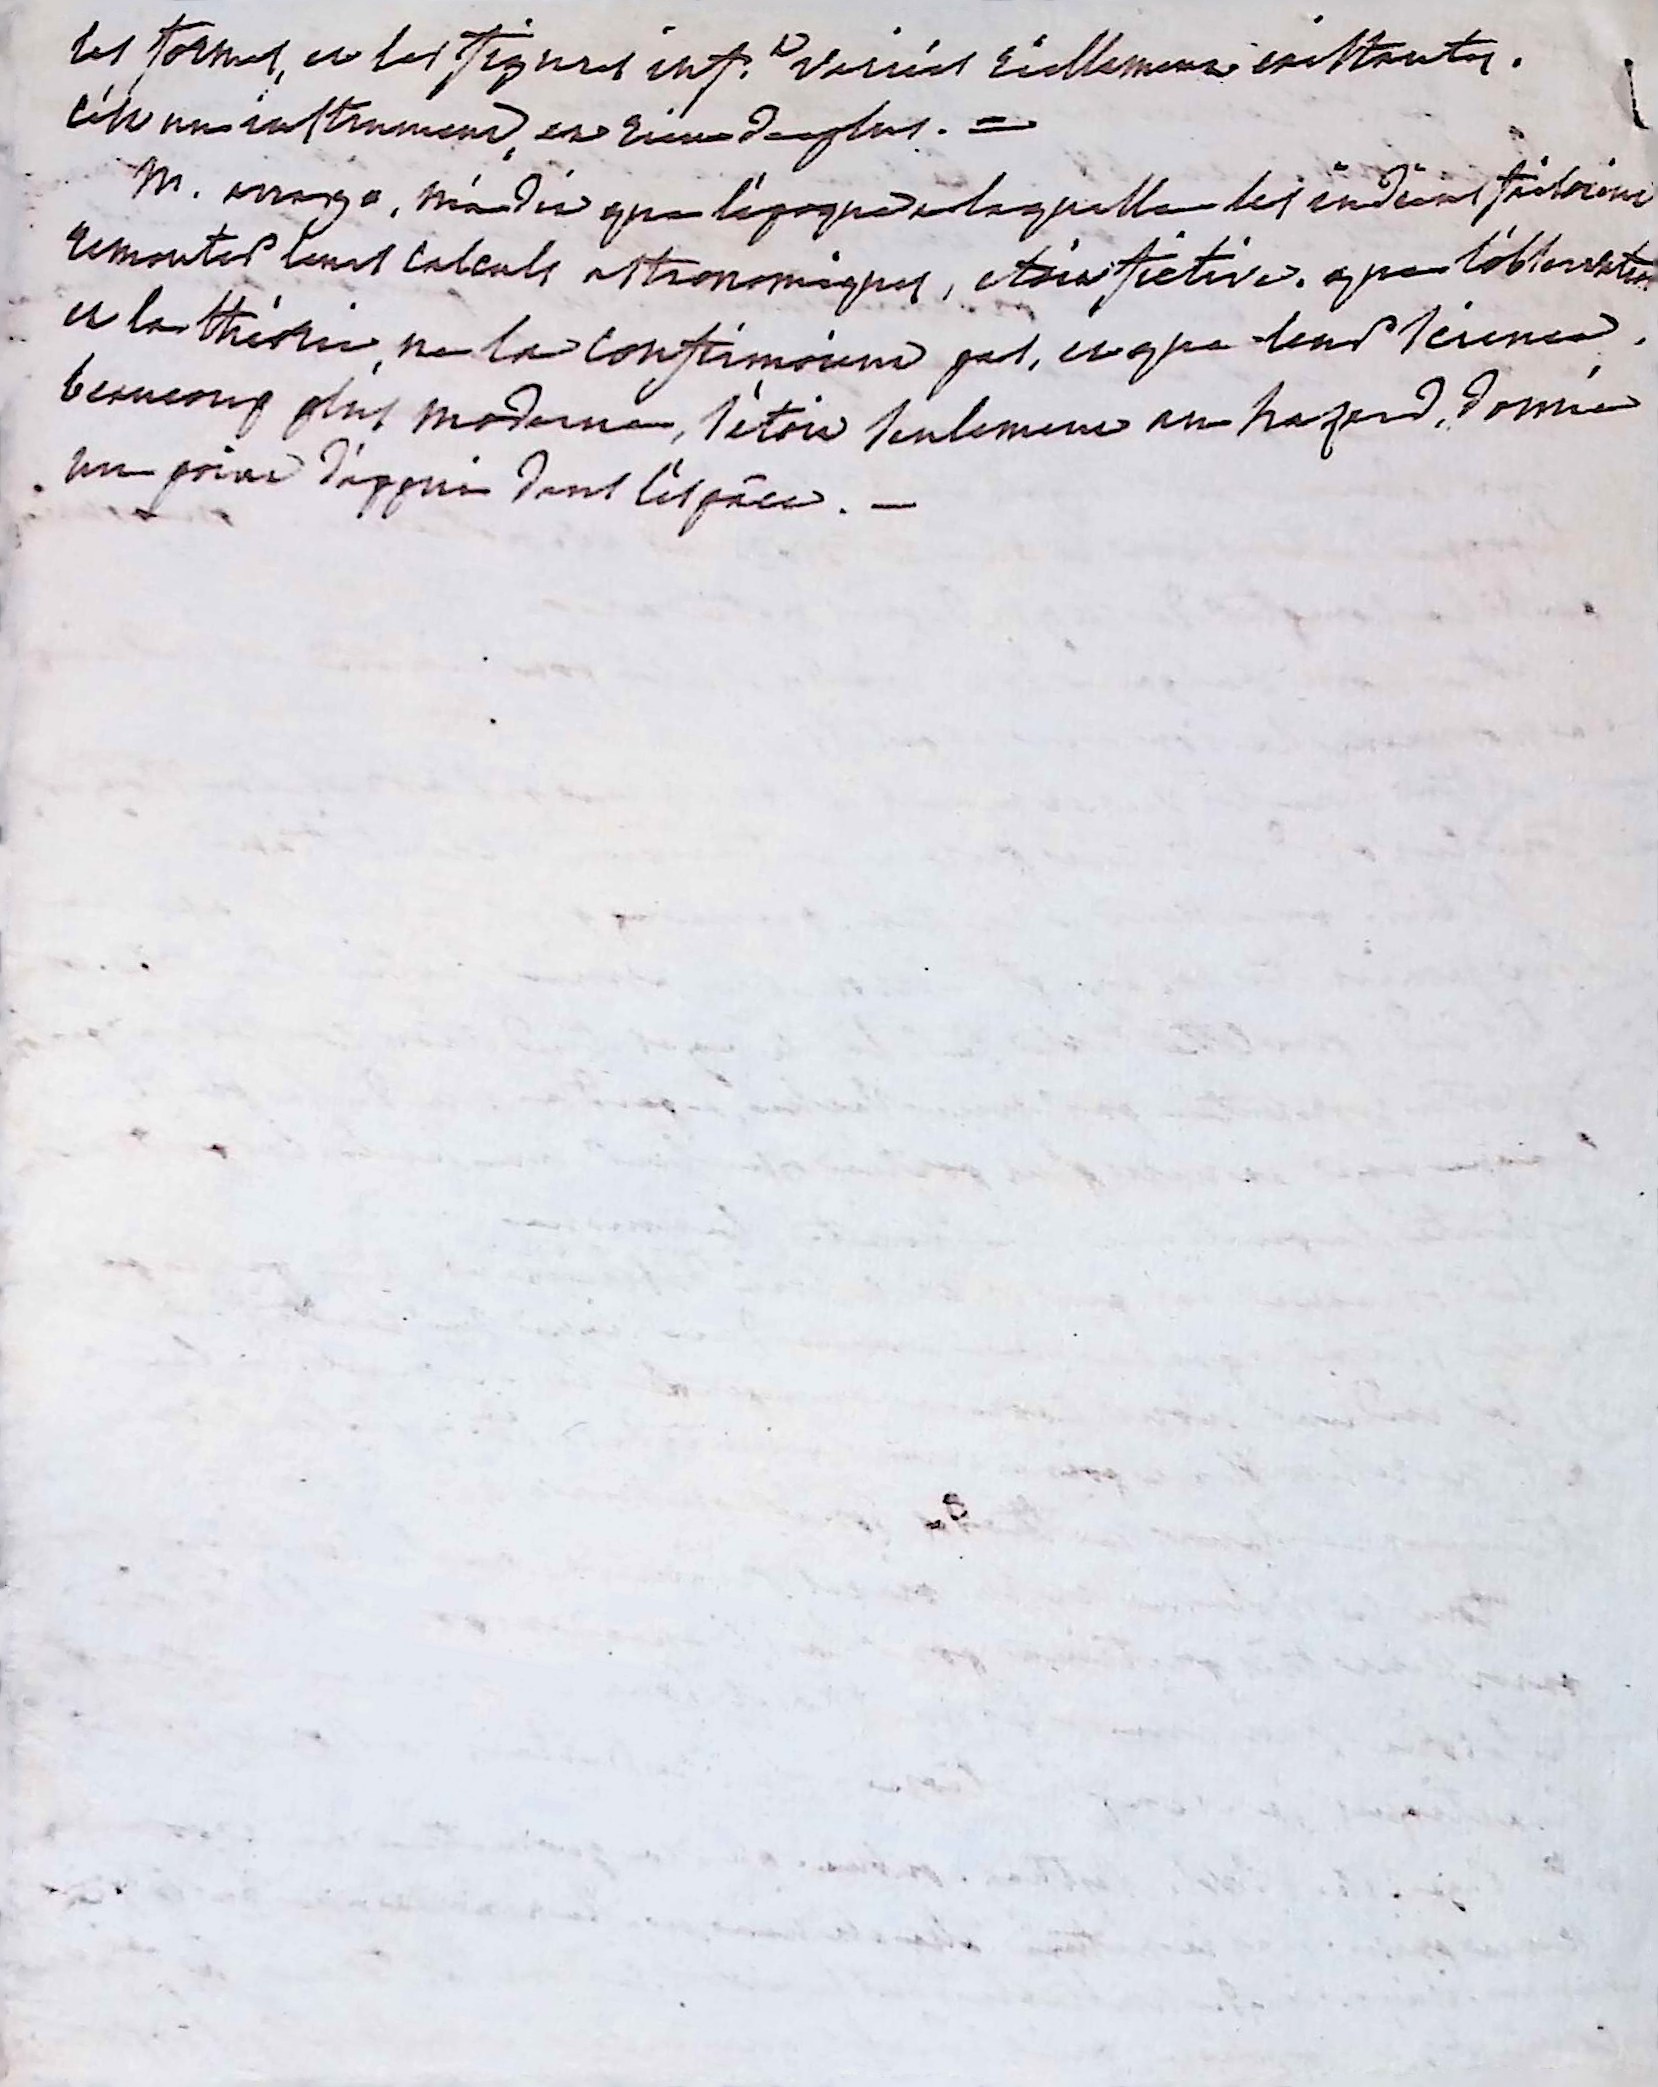 les formes, et les figures inf.t variées réellement existantes.
c'est un instrument, et rien de plus. =
M. arrago, m'a dit que l'époque a laquelle les indiens faisoient
remonter leurs calculs astronomiques, etoit fictive. que l'observation
et la théorie, ne la confirmoient pas, et que leur science,
beaucoup plus moderne, s'étoit seulement au hazard, donnée
un point d'appui dans l'espâce. —